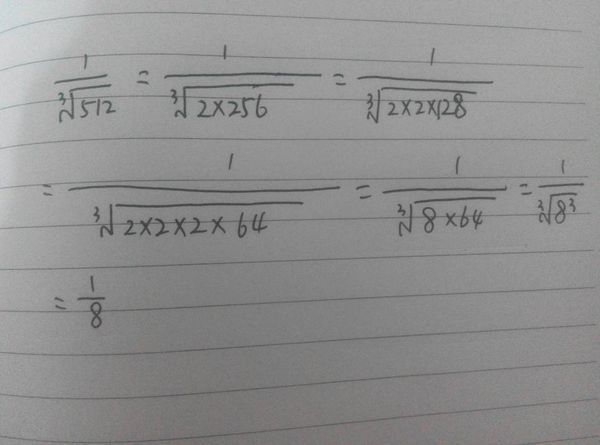 1/∛512 = 1/∛(2×256) = 1/∛(2×2×128)
= 1/∛(2×2×2×64) = 1/∛(8×64) = 1/∛(8³)
= 1/8